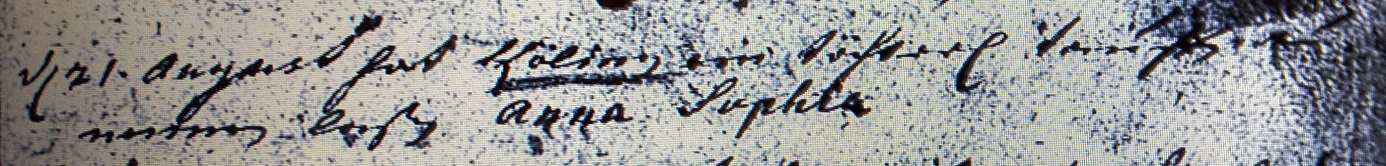 d 21. August hat Köling ein töchterl tauffen
nennen laßen Anna Sophia